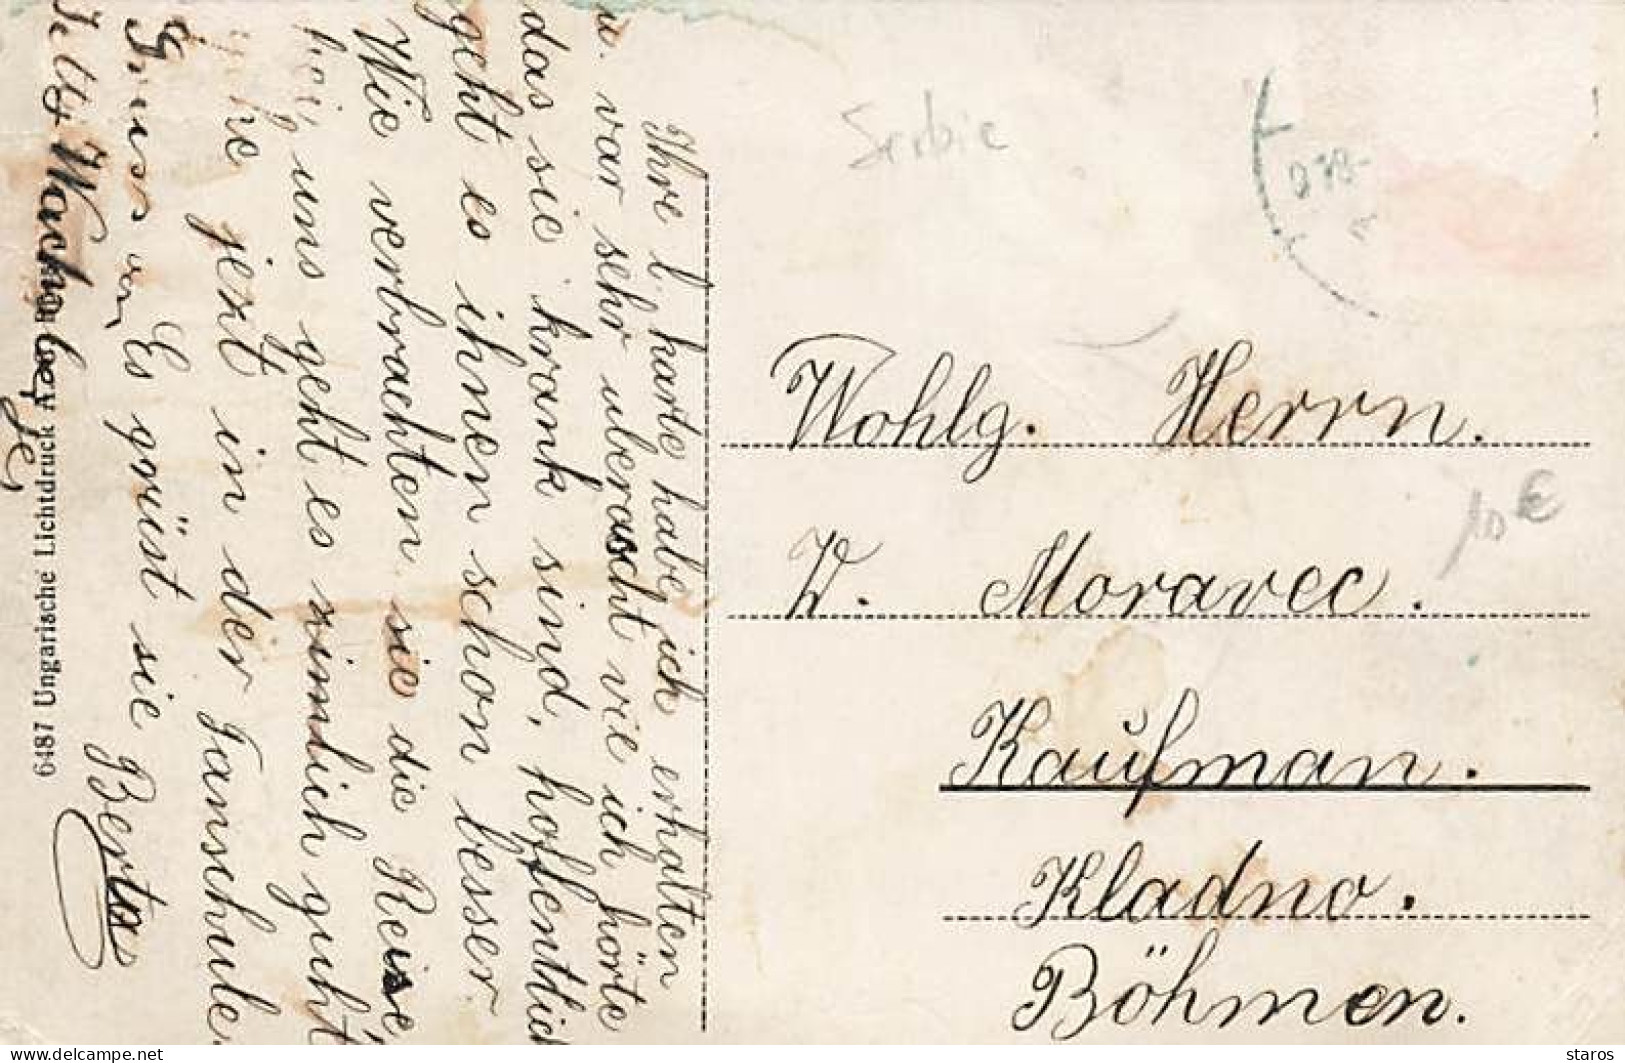 Ihre l. karte habe ich erhalten
u. var sehr uberascht vie ich hörte
das sie krank sind, hoffentlich
geht es ihnen schon besser.
Wie verbrachten sie die Reise
bei uns geht es zimlich guht
jezt in der Tanschule
Es grüst sie Berta
Gruss von
6487 Ungarische Lichtdruck
Serbie
Wohlg. Herrn.
W. Moravec.
Kaufman.
Kladno.
Böhmen.
10 €
delcampe.net
staros